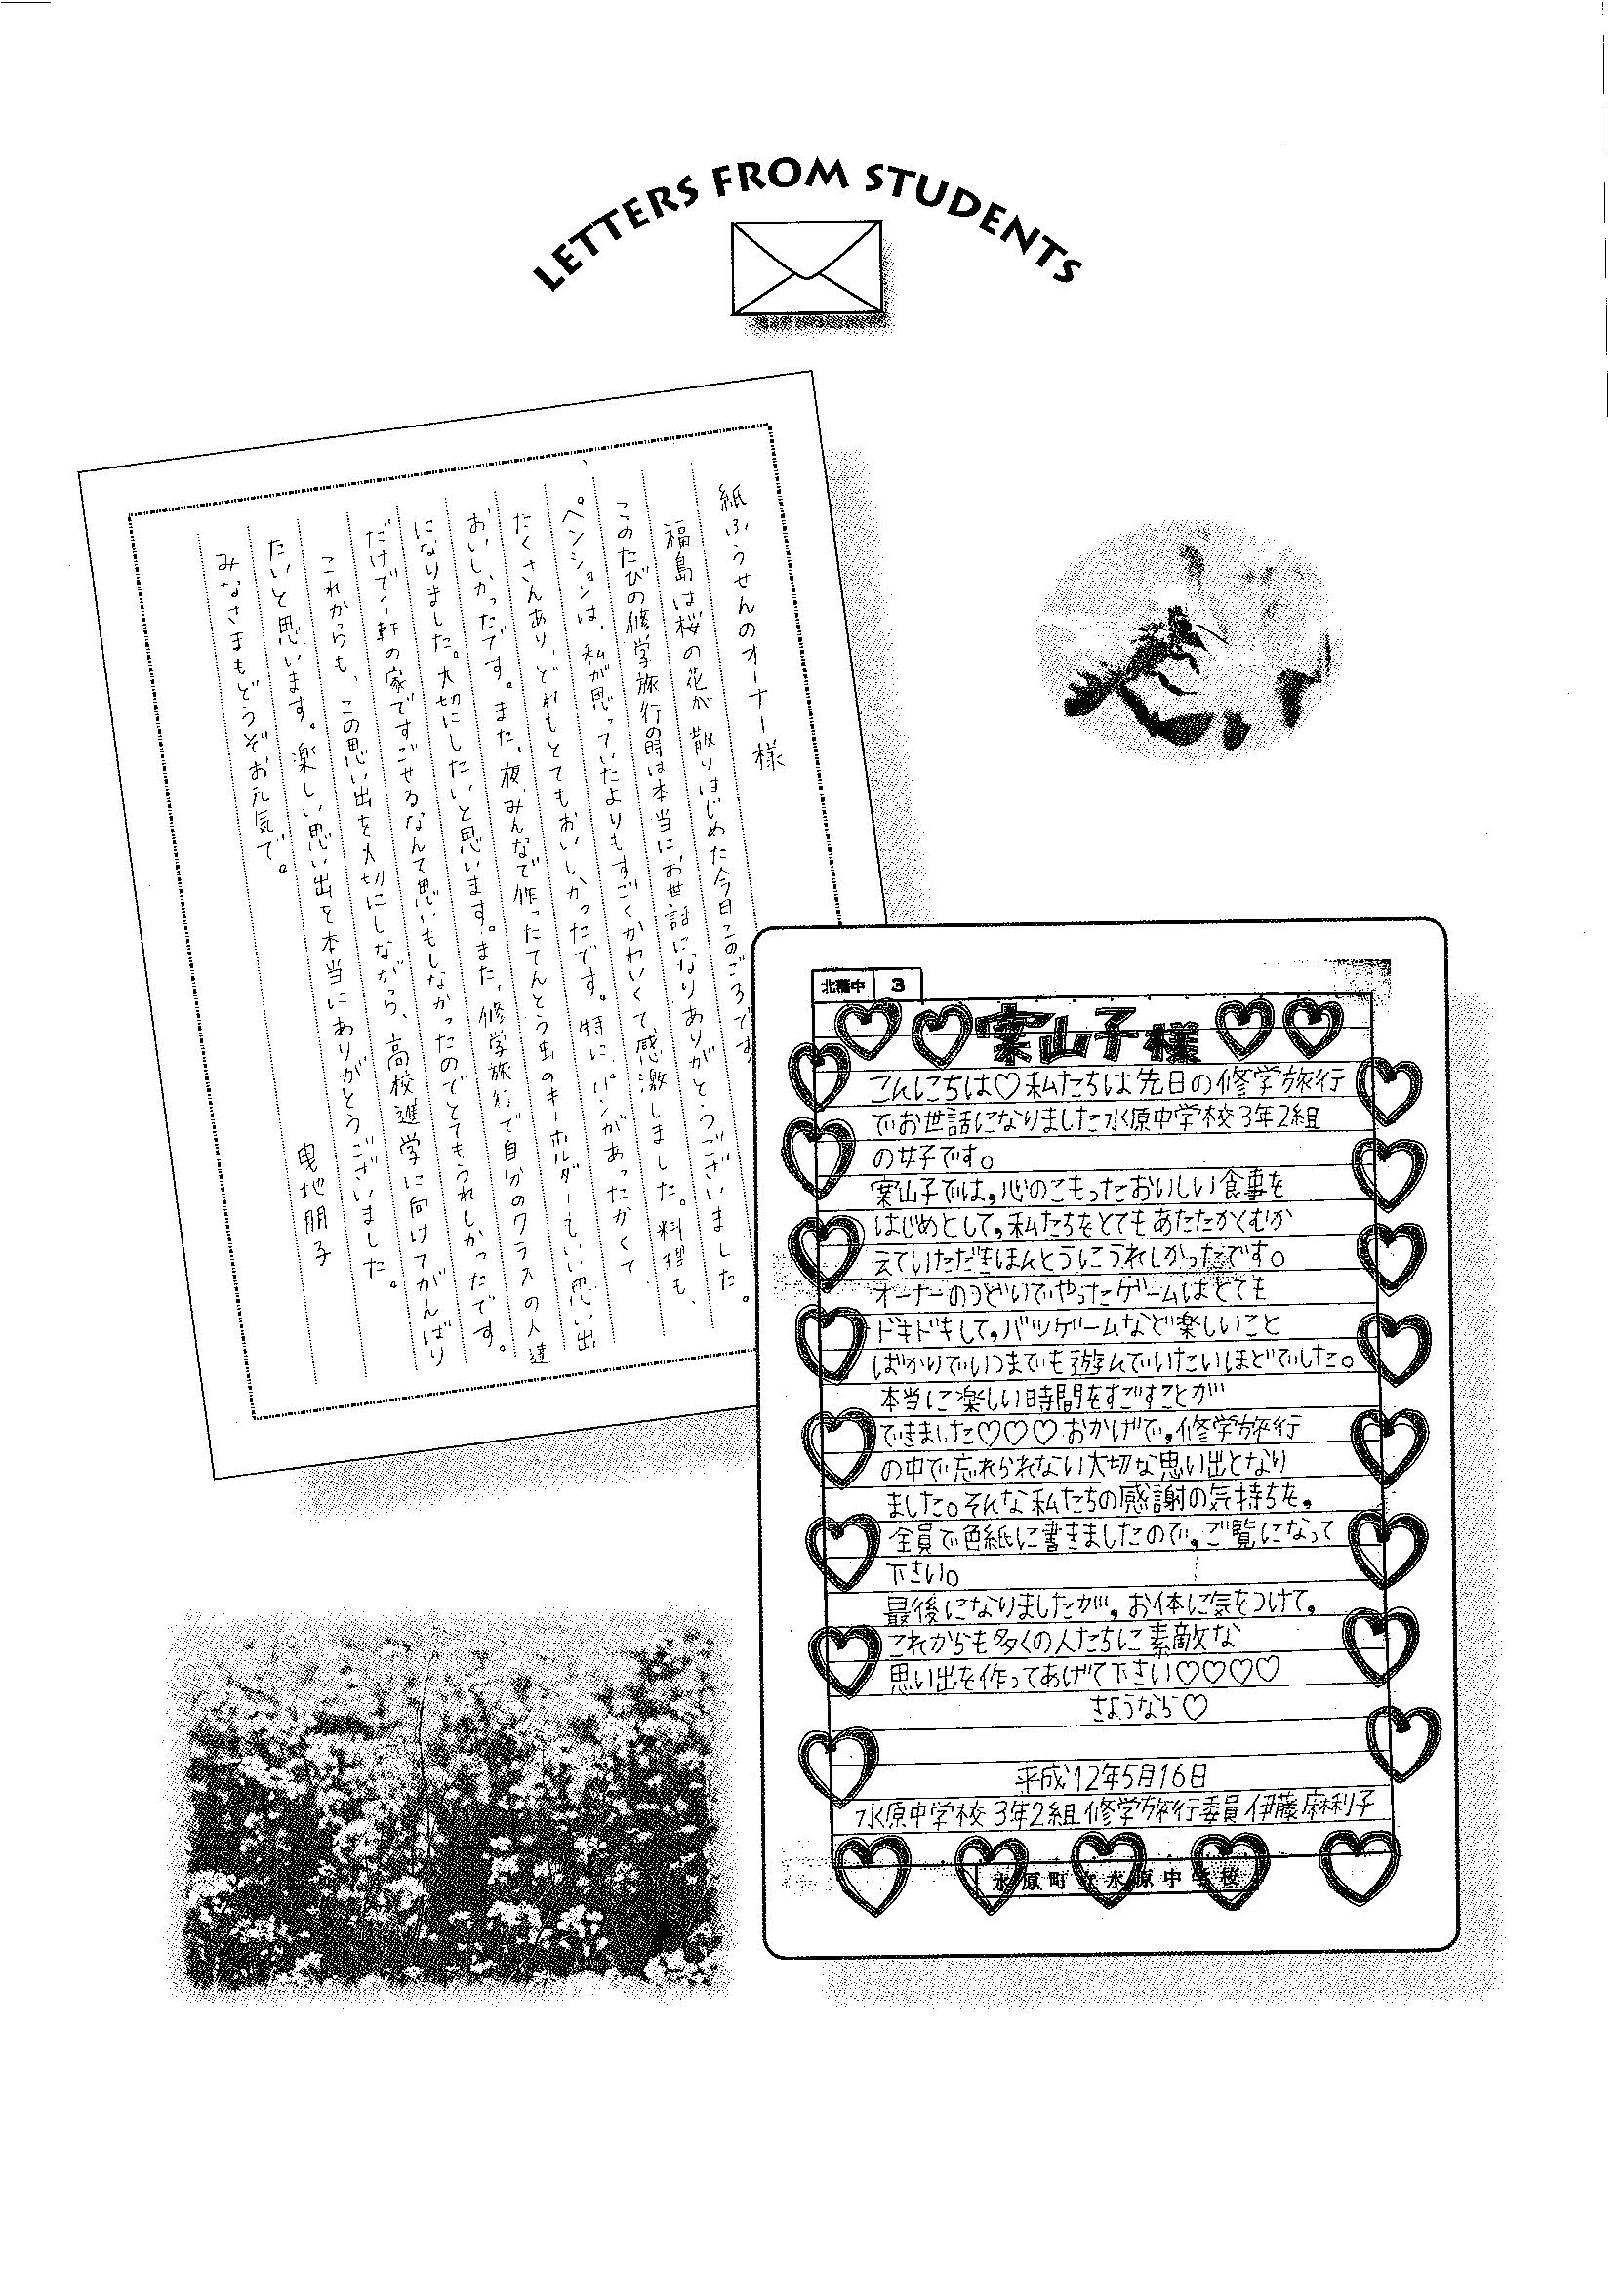 LETTERS FROM STUDENTS
紙ふうせんのオーナー様
福島は桜の花が散りはじめた今日このごろです
このたびの修学旅行の時は本当にお世話になりありがとうございました。
ペンションは、私が思っていたよりもすごくかわいくて感激しました。料理も、
たくさんあり、どれもとてもおいしかったです。特に、パンがあったかくて
おいしかったです。また、夜、みんなで作ったてんとう虫のキーホルダーもいい思い出
になりました。大切にしたいと思います。また、修学旅行で自分のクラスの人達
だけで1軒の家ですごせるなんて思いもしなかったのでとてもうれしかったです。
これからも、この思い出を大切にしながら、高校進学に向けてがんばり
たいと思います。楽しい思い出を本当にありがとうございました。
みなさまもどうぞお元気で。
曳地朋子
3
案山子様
こんにちは♡私たちは先日の修学旅行
でお世話になりました水原中学校3年2組
の女子です。
案山子では,心のこもったおいしい食事を
はじめとして,私たちをとてもあたたかくむか
えていただきほんとうにうれしかったです。
オーナーのつどいでやったゲームはとても
ドキドキして,バツゲームなど楽しいこと
ばかりでいつまでも遊んでいたいほどでした。
本当に楽しい時間をすごすことが
できました♡♡♡おかげで,修学旅行
の中で忘れられない大切な思い出となり
ました。そんな私たちの感謝の気持ちを,
全員で色紙に書きましたので,ご覧になって
下さい。
最後になりましたが,お体に気をつけて,
これからも多くの人たちに素敵な
思い出を作ってあげて下さい♡♡♡♡
さようなら♡
平成12年5月16日
水原中学校3年2組修学旅行委員伊藤麻利子
水原町立水原中学校